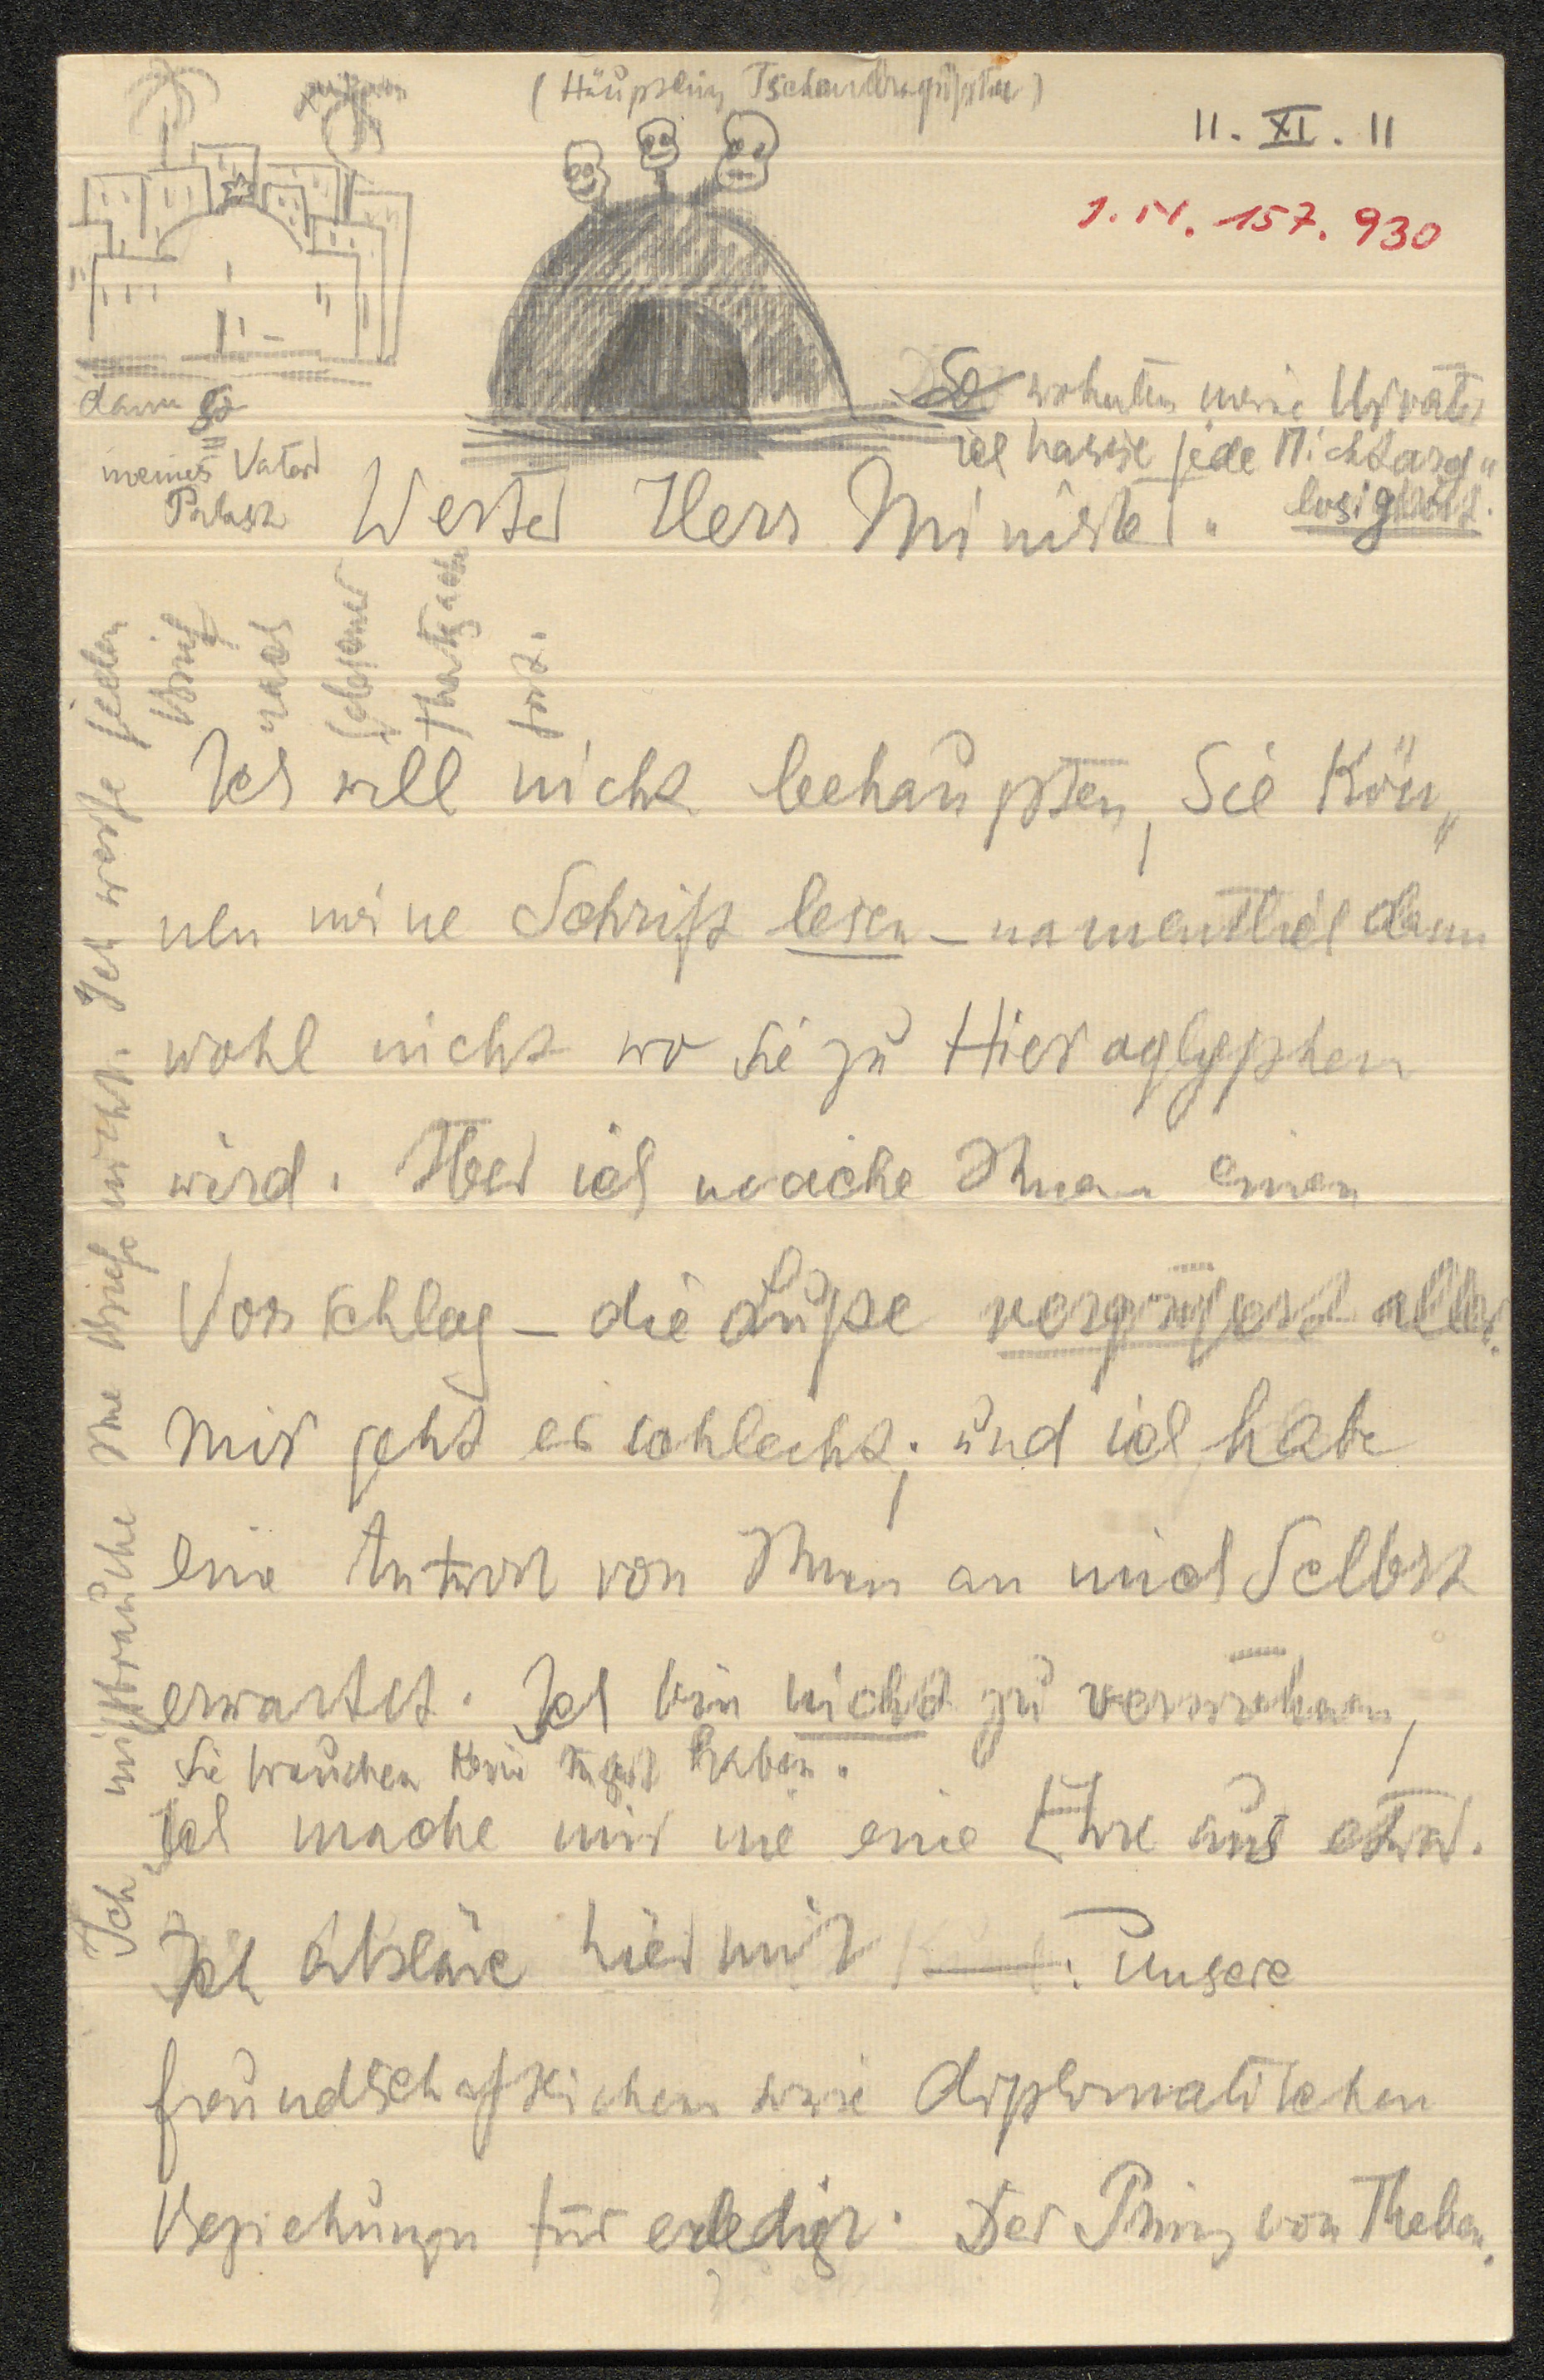 (Häuptling Tschandragupta)
11. XI. 11
1. N. 157. 930
So wohnten meine Urväter
ich hasse jede Nichtarg„
losigkeit.
dann
meines Vaters
Palast
Werter Herr Minister.
Ich will nicht behaupten, Sie kön„
nen meine Schrift lesen – namentlich dann
wohl nicht wo sie zu Hieroglyphen
wird. Aber ich mache Ihnen einen
Vorschlag – die Lupe vergrößert alles.
Mir geht es schlecht; und ich habe
eine Antwort von Ihnen an mich Selbst
erwartet. Ich bin nicht zu verwöhnen,
Sie brauchen keine Angst haben.
Ich mache mir nie eine Ehre aus etwas.
Ich erkläre hiermit : unsere
freundschaftlichen wie diplomatischen
Beziehungen für erledigt. Der Prinz von Theben.
Ich mißbrauche Ihre Briefe nicht. Ich werfe jeden
Brief
nach
gelesener
Thatsache
fort.